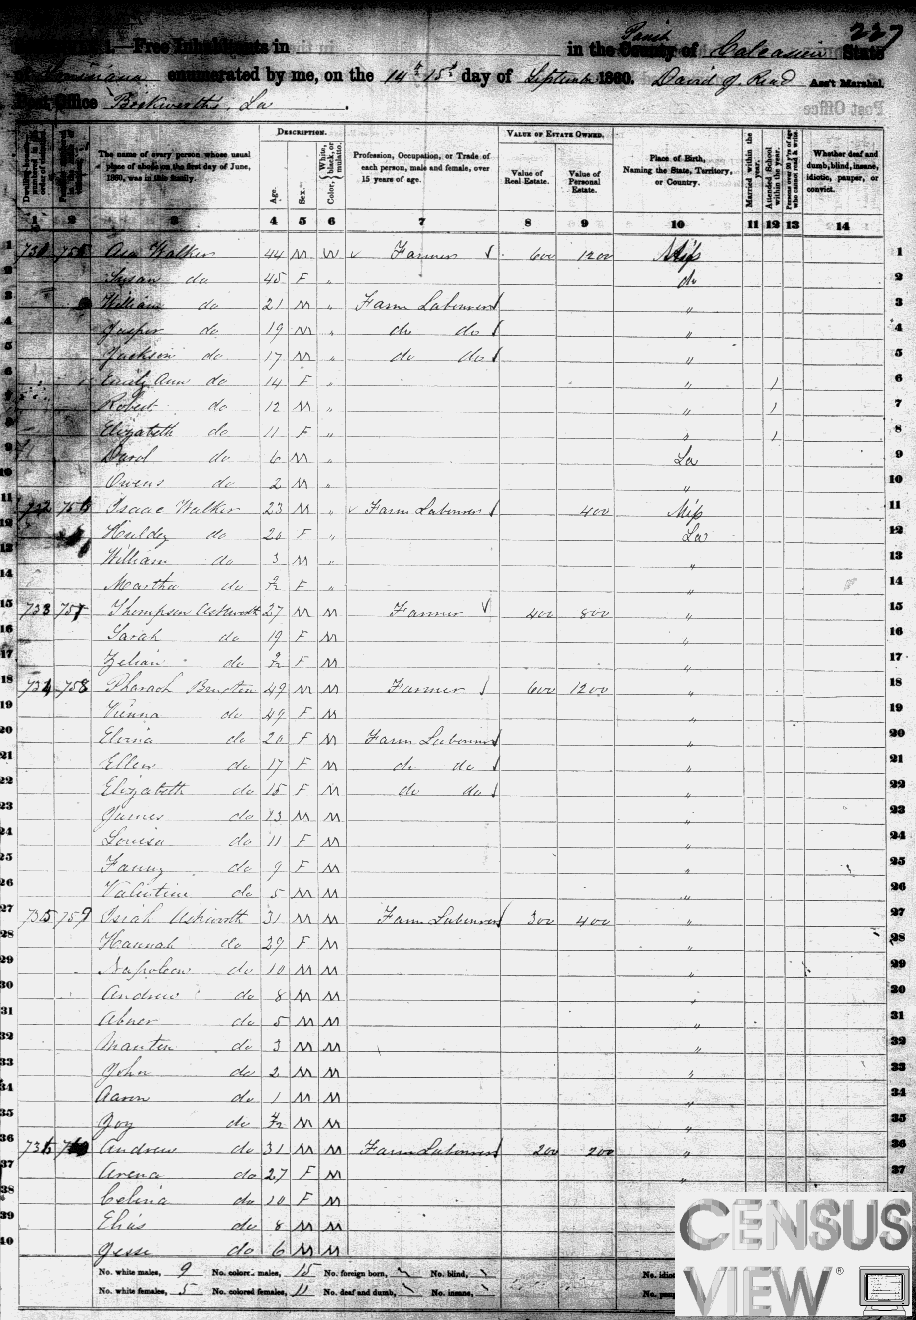 227
Free Inhabitants in in the Parish County of Calcasieu State
of Louisiana enumerated by me, on the 14th 15th day of September 1860. David J. Read Ass't Marshal
Post Office Beckworths La.
The name of every person whose usual place of abode on the first day of June, 1860, was in this family.
DESCRIPTION.
Age. Sex. Color, White, black, or mulatto.
Profession, Occupation, or Trade of each person, male and female, over 15 years of age.
VALUE OF ESTATE OWNED.
Value of Real Estate. Value of Personal Estate.
Place of Birth, Naming the State, Territory, or Country.
Married within the year. Attended School within the year.
Whether deaf and dumb, blind, insane, idiotic, pauper, or convict.
1 2 3 4 5 6 7 8 9 10 11 12 13 14
1 731 755 Asa Walker 44 M W Farmer 600 1200 Miss 1
2 Susan do 45 F " do 2
3 William do 21 M " Farm Laborer " 3
4 Jasper do 19 M " do do " 4
5 Jackson do 17 M " do do " 5
6 Ann do 14 F " " 1 6
7 Robert do 12 M " " 1 7
8 Elizabeth do 11 F " " 1 8
9 David do 6 M " La 9
10 Owens do 2 M " " 10
11 732 756 Isaac Walker 23 M " Farm Laborer 400 Miss 11
12 Huldy do 20 F " La 12
13 William do 3 M " " 13
14 Martha do F " " 14
15 733 757 Thompson Ashworth 27 M M Farmer 400 800 " 15
16 Sarah do 19 F M " 16
17 Zelian do F M " 17
18 734 758 Pharaoh 49 M M Farmer 600 1200 " 18
19 Vienna do 49 F M " 19
20 do 20 F M Farm Laborer " 20
21 Ellen do 17 F M do do " 21
22 Elizabeth do 15 F M do do " 22
23 James do 13 M M " 23
24 Louisa do 11 F M " 24
25 Fanny do 9 F M " 25
26 Valentine do 5 M M " 26
27 735 759 Ashworth 31 M M Farm Laborer 300 400 " 27
28 Hannah do 29 F M 28
29 Napoleon do 10 M M " 29
30 Andrew do 8 M M " 30
31 Abner do 5 M M " 31
32 do 3 M M " 32
33 John do 2 M M " 33
34 Aaron do 1 M M " 34
35 do M M " 35
36 736 760 Andrew do 31 M M Farm Laborer 200 200 " 36
37 Arena do 27 F M " 37
38 Celina do 10 F M
39 Elias do 8 M M
40 Jesse do 6 M M
No. white males, 9 No. colored males, 15 No. foreign born, No. blind,
No. white females, 5 No. colored females, 11 No. deaf and dumb, No. insane,
CENSUS
VIEW®